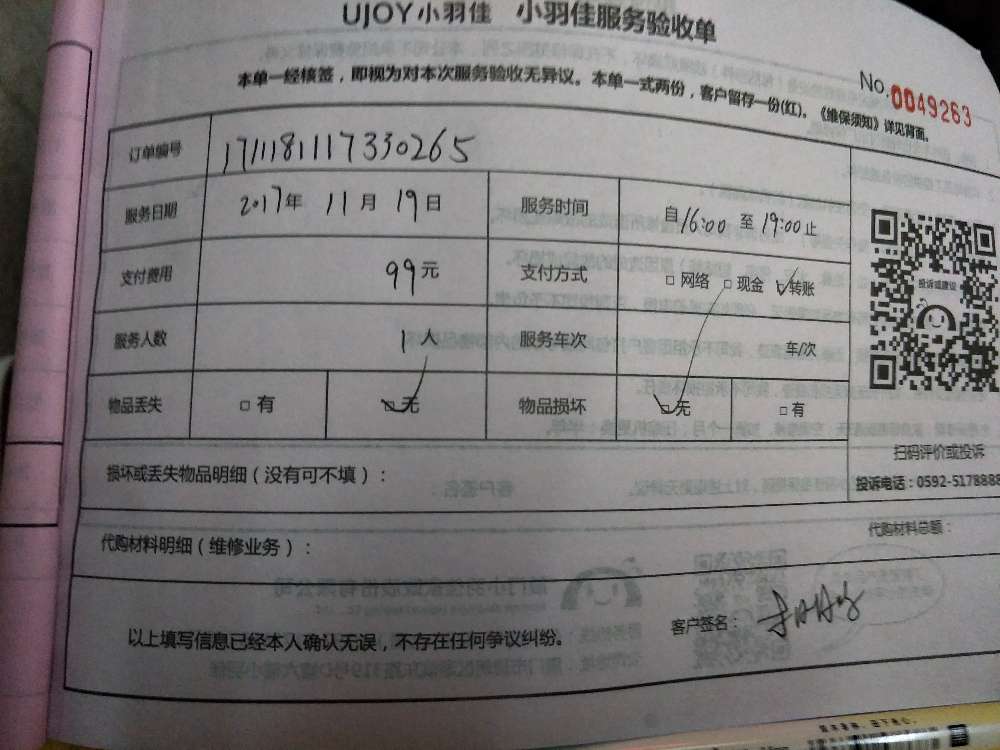 UJOY小羽佳 小羽佳服务验收单
本单一经核签，即视为对本次服务验收无异议。本单一式两份，客户留存一份(红)。《维保须知》详见背面。
No.0049263
订单编号 1711181117330265
服务日期 2017年 11月 19日 服务时间 自16:00 至 19:00止
支付费用 99元 支付方式 □ 网络 □ 现金 ☑转账
服务人数 1人 服务车次 车/次
投诉或建议
物品丢失 □ 有 ☑无 物品损坏 ☑无 □ 有
扫码评价或投诉
损坏或丢失物品明细（没有可不填）：
投诉电话：0592-5178888
代购材料明细（维修业务）： 代购材料总额：
以上填写信息已经本人确认无误，不存在任何争议纠纷。 客户签名：